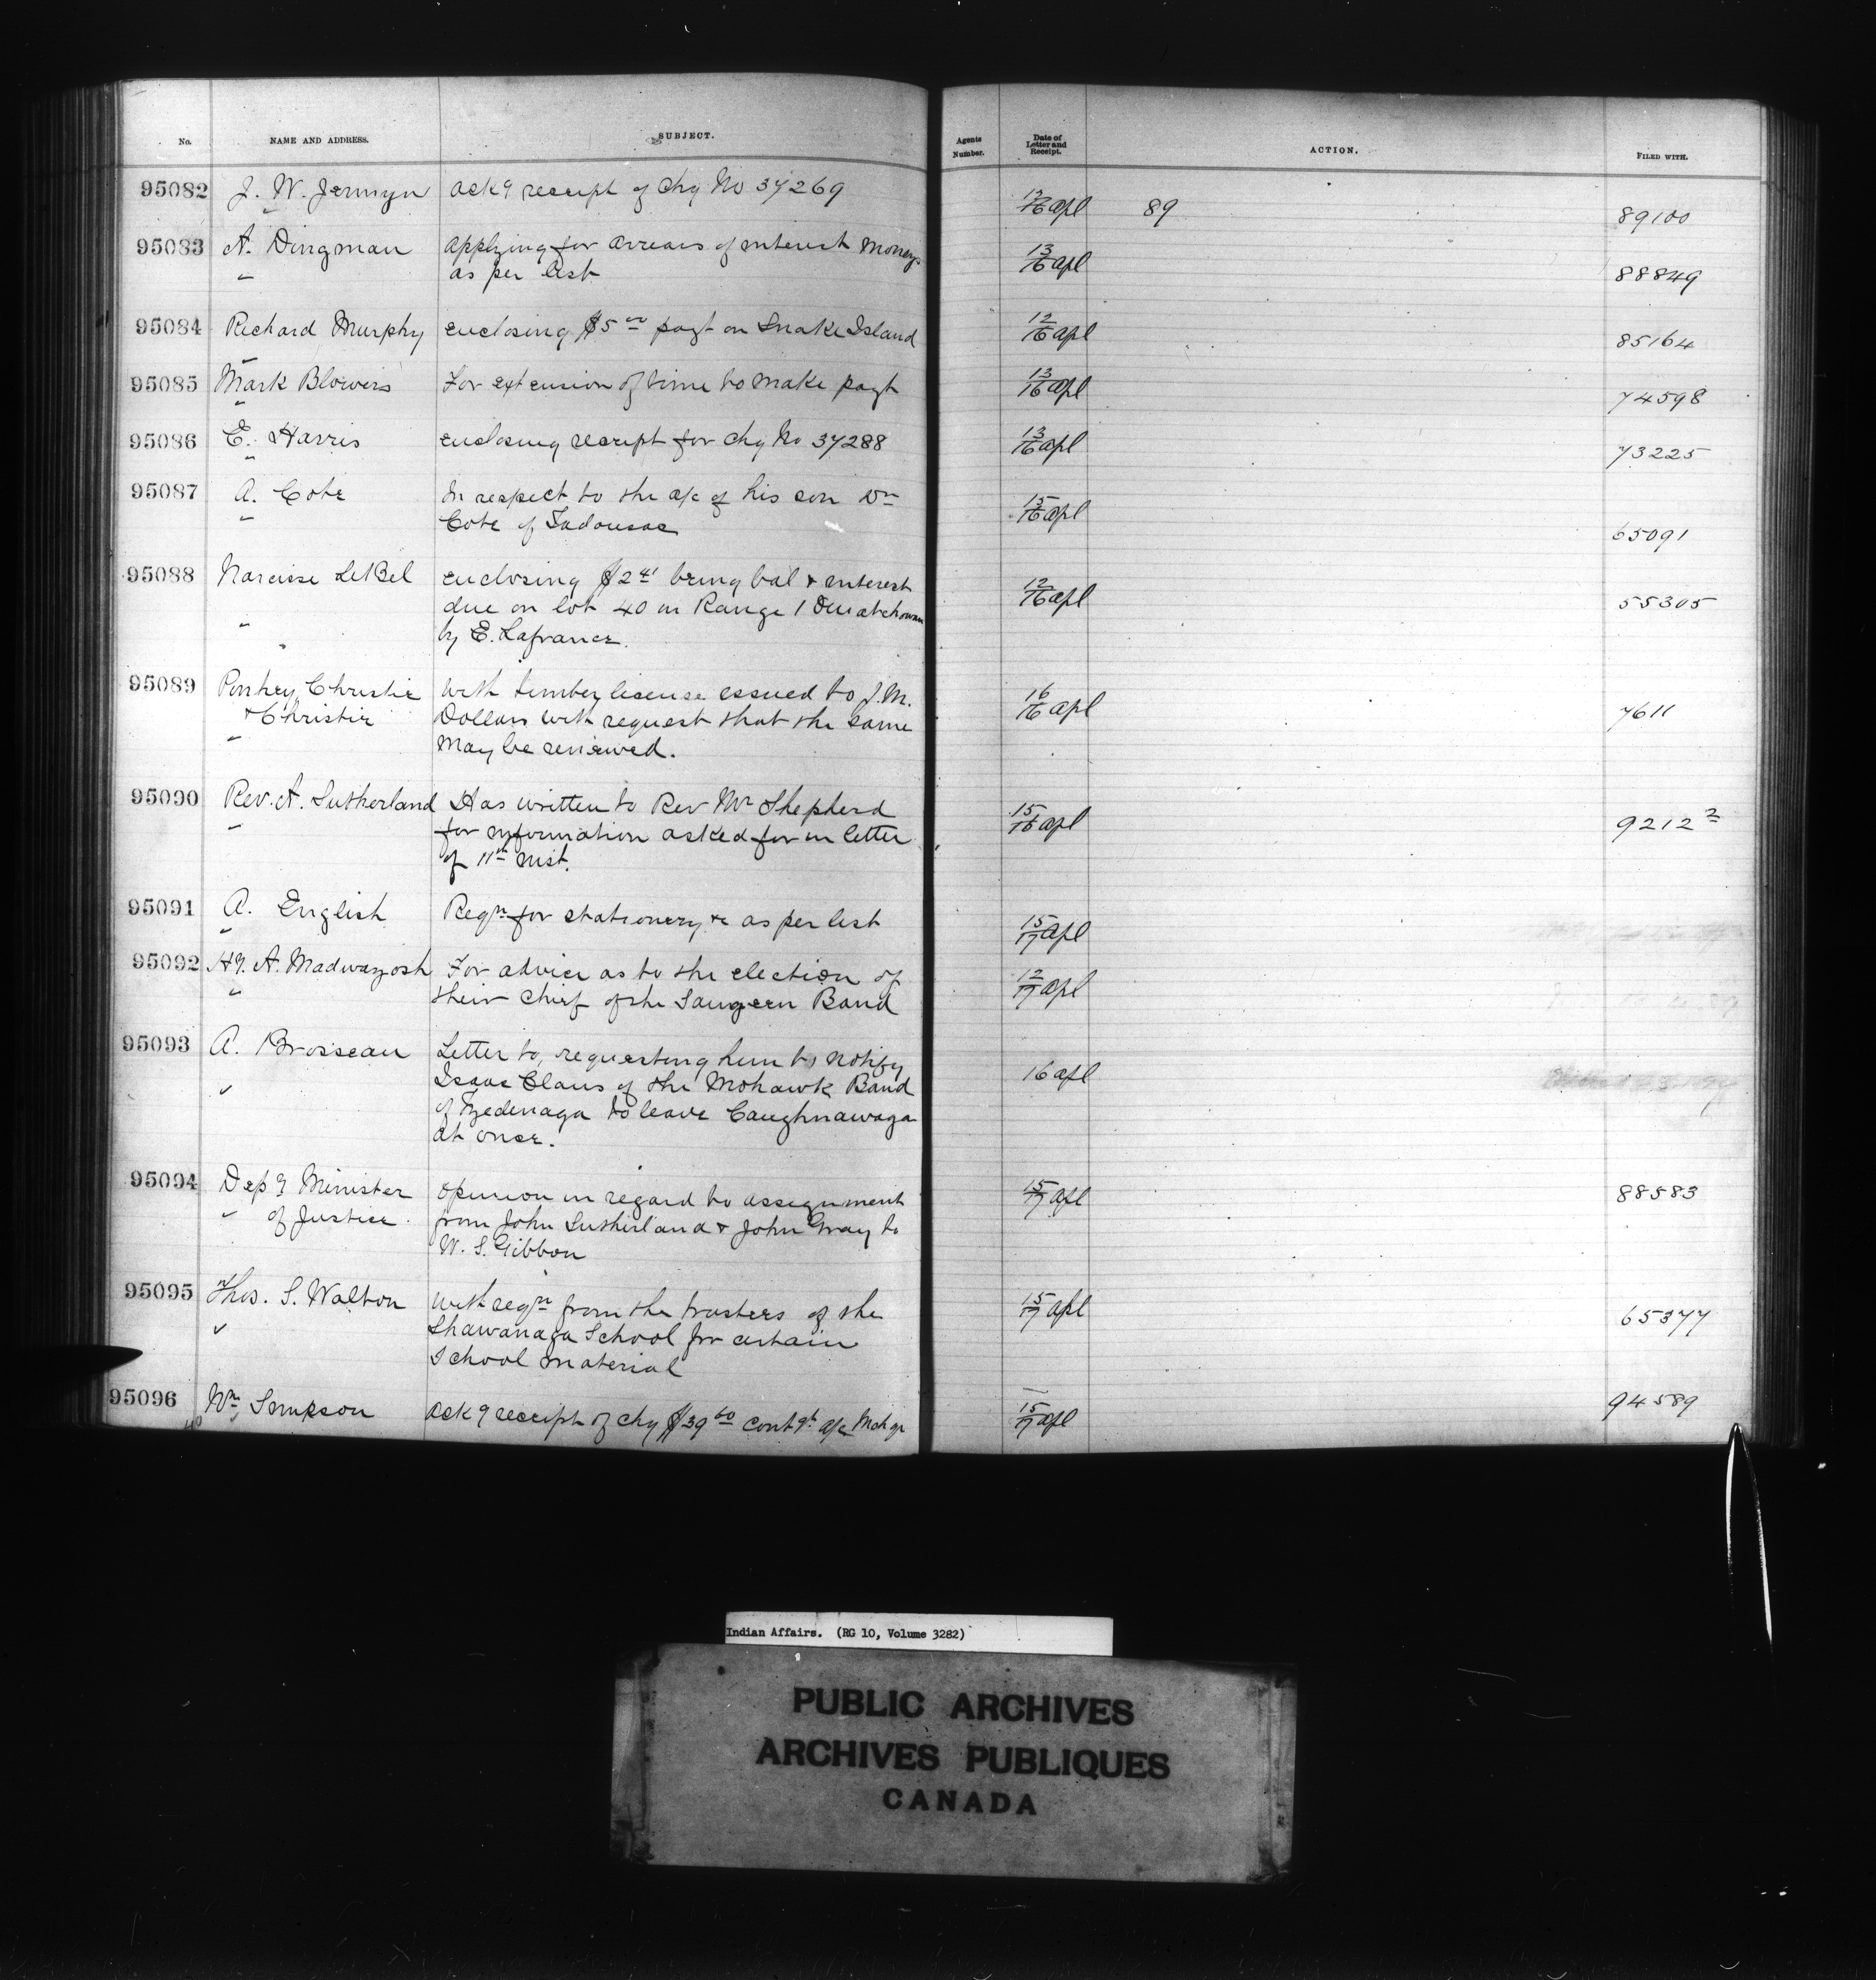 No. NAME AND ADDRESS. SUBJECT. Agents Number. Date of Letter and Receipt. ACTION. FILED WITH.
95082 J. W. Jermyn Ackg receipt of chq No 37269 13/16 apl 89 89100
95083 A. Dingman Applying for arrears of interest money 13/16 apl 88849
as per list
95084 Richard Murphy enclosing $5 00 payt on Snake Island 12/16 apl 85164
95085 Mark Blowers For extension of time to make payt 13/16 apl 74598
95086 E. Harris enclosing receipt for chq No 37288 13/16 apl 73225
95087 A. Cote In respect to the a/c of his son Dr 15/16 apl 65091
Cote of Tadousac
95088 Narcisse LeBel enclosing $2 41 being bal & interest 12/16 apl 55305
due on lot 40 in Range 1 Ouiatchouan
by E. Lafrance.
95089 Christie with timber license issued to J. M. 16/16 apl 7611
& Christie Dollars with request that the same
may be renewed.
95090 Rev. A. Sutherland Has written to Rev Mr Shepherd 15/16 apl 9212 2
for information asked for in letter
of 11th inst.
95091 A. English Reqn for stationery &c as per list 15/17 apl
95092 Hy. A. Madwayosh For advice as to the election of 12/17 apl
their chief of the Saugeen Band
95093 A. Brosseau Letter to, requesting him to notify 16 apl
Isaac Claus of the Mohawk Band
of Tyedenaga to leave Caughnawaga
at once.
95094 Depy Minister opinion in regard to assignment 15/17 apl 88583
of Justice. from John Sutherland & John Gray to
W. S. Gibbon
95095 Thos. S. Walton with reqn from the trustees of the 15/17 apl 65377
Shawanaga School for certain
School material
95096 Wm Simpson Ackg receipt of chq $39 60 contgt a/c Mch qr 15/17 apl 94589
Indian Affairs. (RG 10, Volume 3282)
PUBLIC ARCHIVES
ARCHIVES PUBLIQUES
CANADA